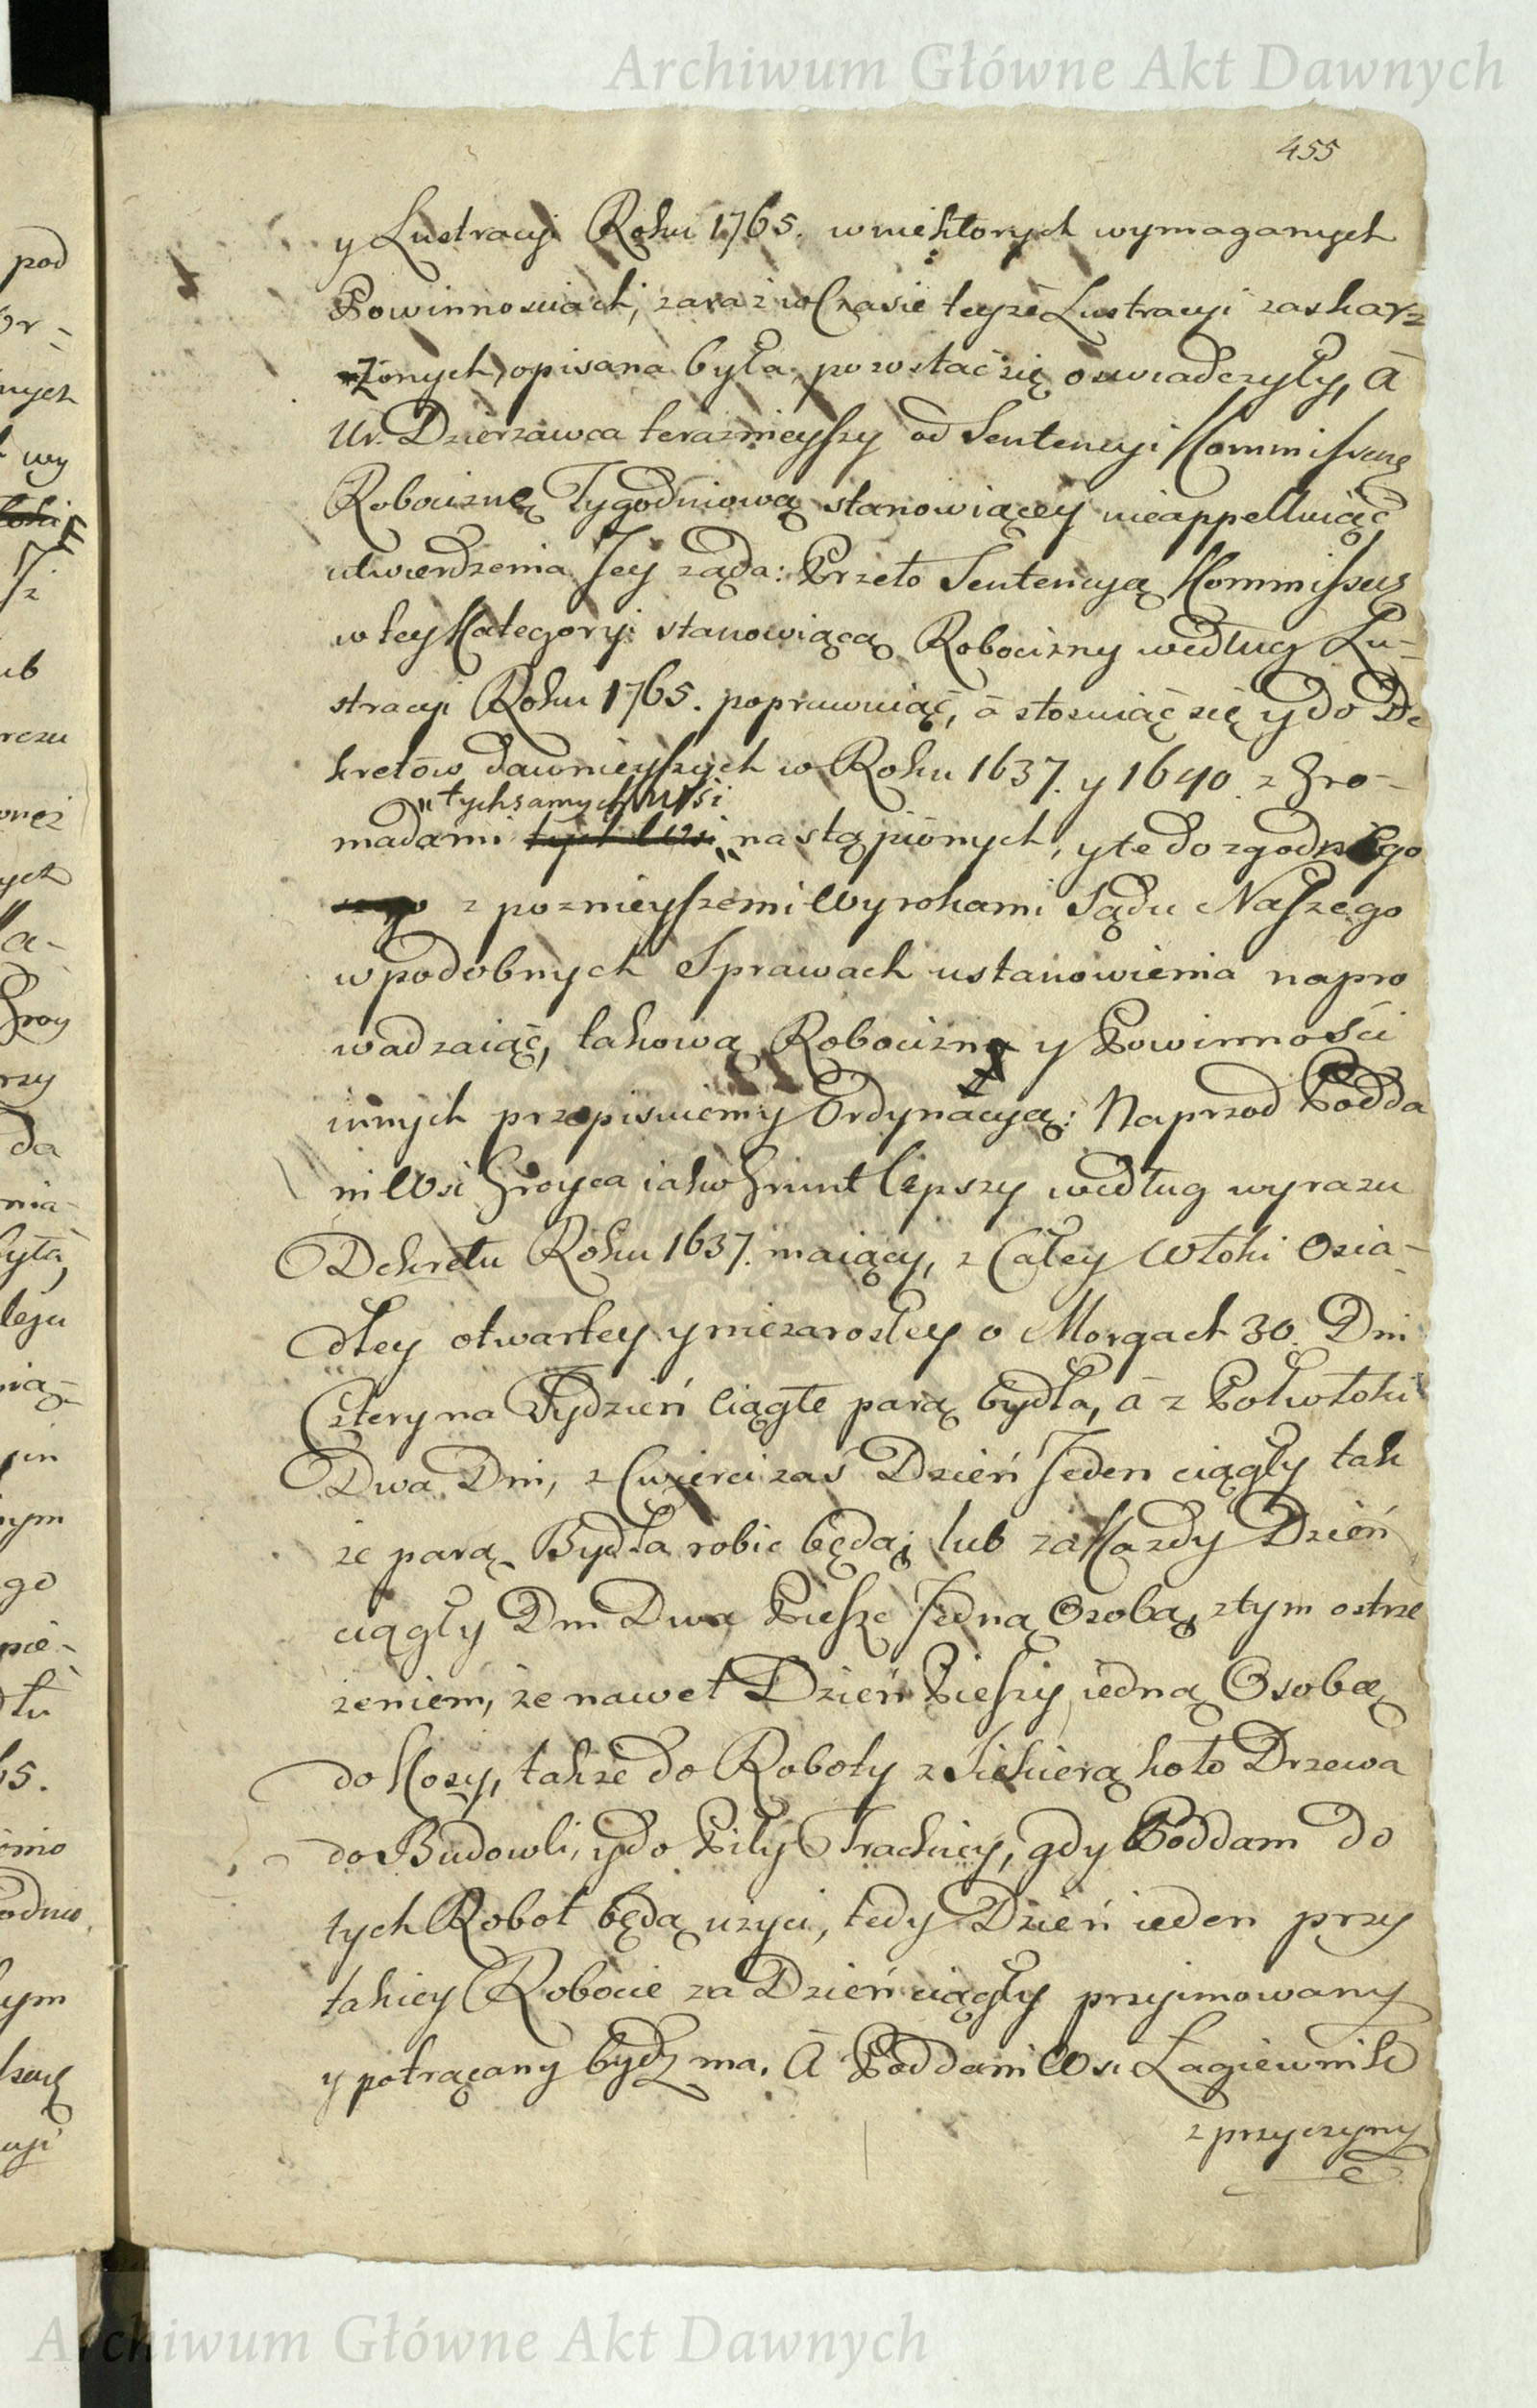 Archiwum Główne Akt Dawnych
455
y Lustracyi Roku 1765. w niektorych wymaganych
Powinnosciach, zaraz w Czasie teyze Lustracyi zaskar-
zonych, opisana była, pozostać się oswiadczyły, á
Ur. Dzierzawca teraznieyszy od Sentencyi Kommissarz.
Robociznę Tygodniową stanowiącey nieappelluiąc
utwierdzenia Jey ząda: Przeto Sentencyą Kommissars
w tey Kategoryi stanowiącą Robocizny według Lu-
stracyi Roku 1765. poprawuiąc, á stosuiąc się y do De
kretow dawnieyszych w Roku 1637. y 1640. z Gro-
tych samych Wsi
madami tych Wsi nastąpionych, y te do zgodnego
z poznieyszemi Wyrokami Sądu Naszego
w podobnych Sprawach ustanowienia napro
wadzaiąc, takową Robocizny y Powinności
innych przepisuiemy Ordynacyą: Naprzod Podda
ni Wsi Groyca iako Grunt lepszy według wyrazu
Dekretu Roku 1637. maiący, z Całey Włoki Osia-
dłey otwartey y niezarosłey o Morgach 30. Dni
Cztery na Tydzień ciągłe parą bydła, á z Połwłoki
Dwa Dni, z Cwierci zaś Dzień Jeden ciągły tak
ze parą Bydła robic będą; lub za Kazdy Dzień
ciągły Dni Dwa Piesze Jedną Osobą, z tym ostrze
zeniem, ze nawet Dzień Pieszy iedną Osobą
do Kosy, takze do Roboty z Siekierą koło Drzewa
do Budowli, y do Piły Trackiey, gdy Poddani do
tych Robot będą uzyci, tedy Dzień ieden przy
takiey Robocie za Dzień ciągły przyimowany
y potrącany bydz ma. Á Poddani Wsi Łagiewnik
z przyczyny
Archiwum Główne Akt Dawnych